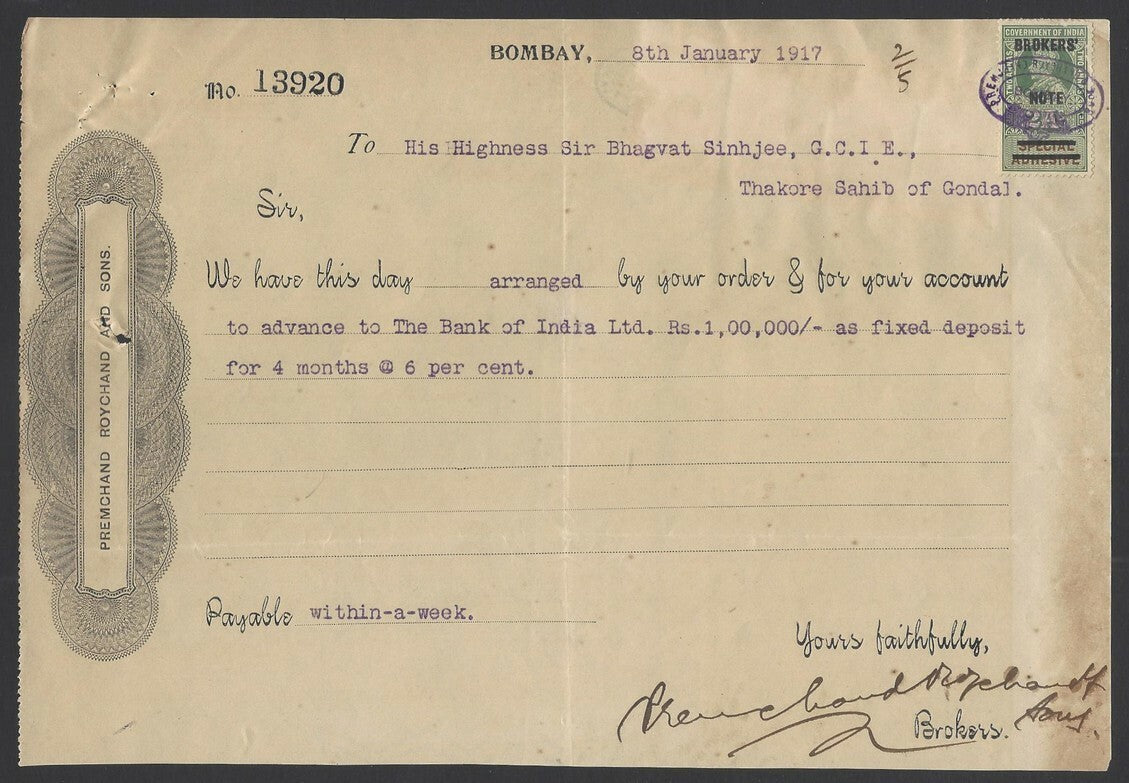 BOMBAY, 8th January 1917
2/5
No. 13920
GOVERNMENT OF INDIA
BROKERS'
NOTE
2A
SPECIAL
ADHESIVE
To His Highness Sir Bhagvat Sinhjee, G.C.I.E.,
Thakore Sahib of Gondal.
Sir,
We have this day arranged by your order & for your account
to advance to The Bank of India Ltd. Rs.1,00,000/- as fixed deposit
for 4 months @ 6 per cent.
Payable within-a-week.
Yours faithfully,
Premchand Roychand &
Sons.
Brokers.
PREMCHAND ROYCHAND AND SONS.